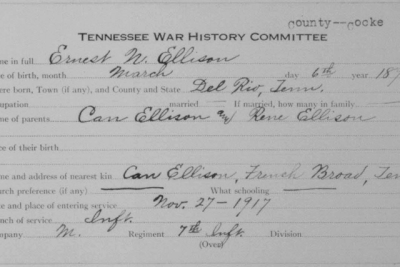 county--Cocke
TENNESSEE WAR HISTORY COMMITTEE
me in full Ernest N. Ellison
e of birth, month March day 6th year 189
ere born, Town (if any), and County and State Del Rio, Tenn.
upation married — If married, how many in family
me of parents Can Ellison and Rene Ellison
ce of their birth
me and address of nearest kin Can Ellison, French Broad, Ten
urch preference (if any) — What schooling
e and place of entering service Nov. 27-1917
nch of service Inft.
mpany M. Regiment 7th Inft. Division
(Over)